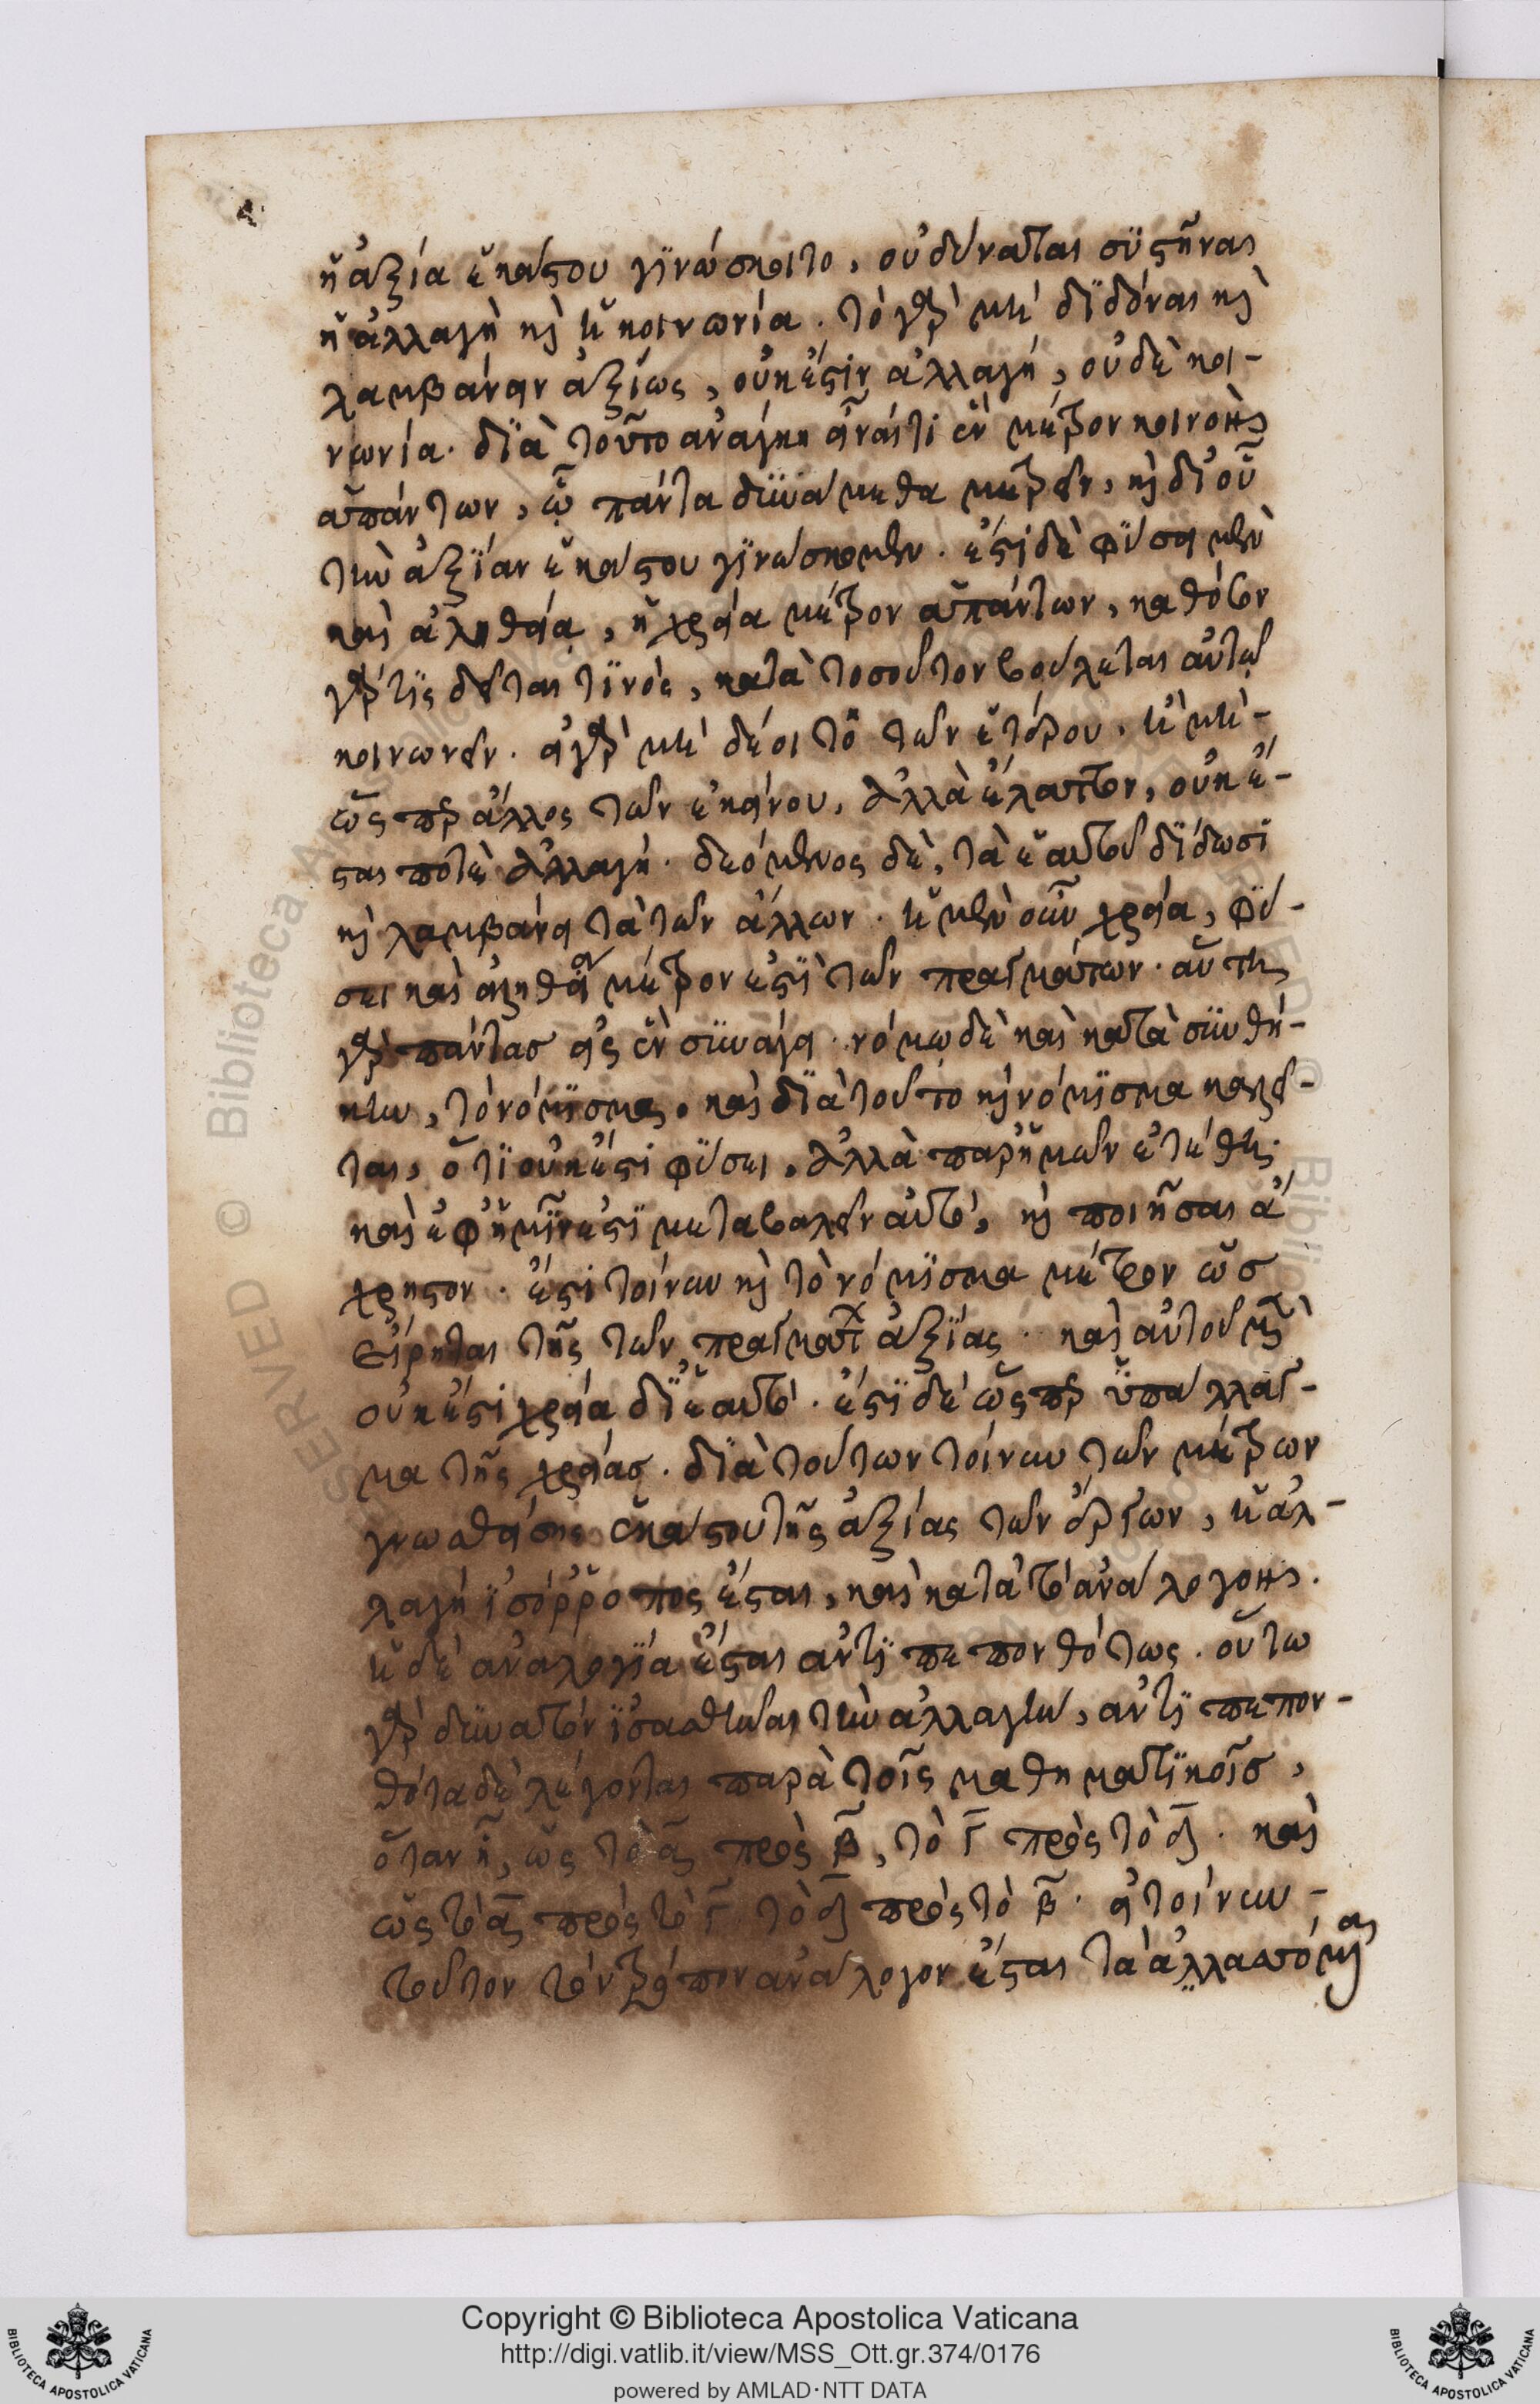 ἡ ἀξία ἑκάστου γϊνώσκοιτο, οὐ δύναται σϋστῆναι
ἡ ἀλλαγὴ καὶ ἡ κοινωνία. τὸ γὰρ μὴ δϊδόναι καὶ
λαμβάνειν ἀξίως, οὐκ ἔστιν ἀλλαγή, οὐδὲ κοι-
νωνία. δϊὰ τοῦτο ἀνάγκη εἶναί τι ἓν μέτρον κοινὸν
ἁπάντων, ᾧ πάντα δυνάμεθα μετρεῖν, καὶ δι' οὗ
τὴν ἀξϊαν ἑκάστου γϊνώσκομεν. ἔστι δὲ φύσει μὲν
καὶ ἀληθείᾳ, ἡ χρεία μέτρον ἁπάντων, καθόσον
γάρ τϊς δεῖται τϊνὸς, κατὰ τοσοῦτον βούλεται αὐτῷ
κοινωνεῖν. εἰ γὰρ μὴ δέοιτο τῶν ἑτέρου, ἢ μὴ-
ὥσπερ ἄλλος τῶν ἐκείνου, ἀλλὰ ἔλαττον, οὐκ ἔ-
σται ποτὲ ἀλλαγή. δεόμενος δὲ, τὰ ἑαυτοῦ δϊδωσι
καὶ λαμβάνει τὰ τῶν ἄλλων. ἡ μὲν οὖν χρεία, φύ-
σει καὶ ἀληθείᾳ μέτρον ἐστϊ τῶν πραγμάτων. αὕτη
γὰρ πάντας εἰς ἓν συνάγει. νόμῳ δὲ καὶ κατὰ συνθή-
κην, τὸ νόμϊσμα. καὶ δϊὰ τοῦτο καὶ νόμϊσμα καλεῖ-
ται, ὅτϊ οὐκ ἔστι φύσει, ἀλλὰ παρ' ἡμῶν ἐτέθη.
καὶ ἐφ' ἡμῖν ἐστϊ μεταβαλεῖν αὐτὸ, καὶ ποιῆσαι ἄ
χρηστον. ἔστι τοίνυν καὶ τὸ νόμϊσμα μέτρον ὡς
εἴρηται τῆς τῶν πραγμάτων ἀξϊας. καὶ αὐτοῦ μὲν
οὐκ ἔστι χρεία δϊ' ἑαυτό. ἔστϊ δὲ ὥσπερ ὑπάλλαγ-
μα τῆς χρείας. δϊὰ τούτων τοίνυν τῶν μέτρων
γνωσθείσης ἑκάστου τῆς ἀξίας τῶν ἔργων, ἡ ἀλ-
λαγὴ ἰσόρροπος ἔσται, καὶ κατὰ τὸ ἀνάλογον.
ἡ δὲ ἀναλογϊα ἔσται ἀντϊπεπονθότως. οὕτω
γὰρ δυνατὸν ἰσασθῆναι τὴν ἀλλαγήν, ἀντϊπεπον-
θότα δὲ λέγονται παρὰ τοῖς μαθηματϊκοῖς,
ὅταν ᾖ, ὡς τὸ α πρὸς β, τὸ γ πρὸς τὸ δ. καὶ
ὡς τὸ α πρὸς τὸ γ τὸ δ πρὸς τὸ β. εἰ τοίνυν-
τοῦτον τὸν τρόπον ἀνάλογον ἔσται τὰ ἀλλασσόμενα
Copyright © Biblioteca Apostolica Vaticana
http://digi.vatlib.it/view/MSS_Ott.gr.374/0176
powered by AMLAD·NTT DATA
BIBLIOTECA APOSTOLICA VATICANA
BIBLIOTECA APOSTOLICA VATICANA